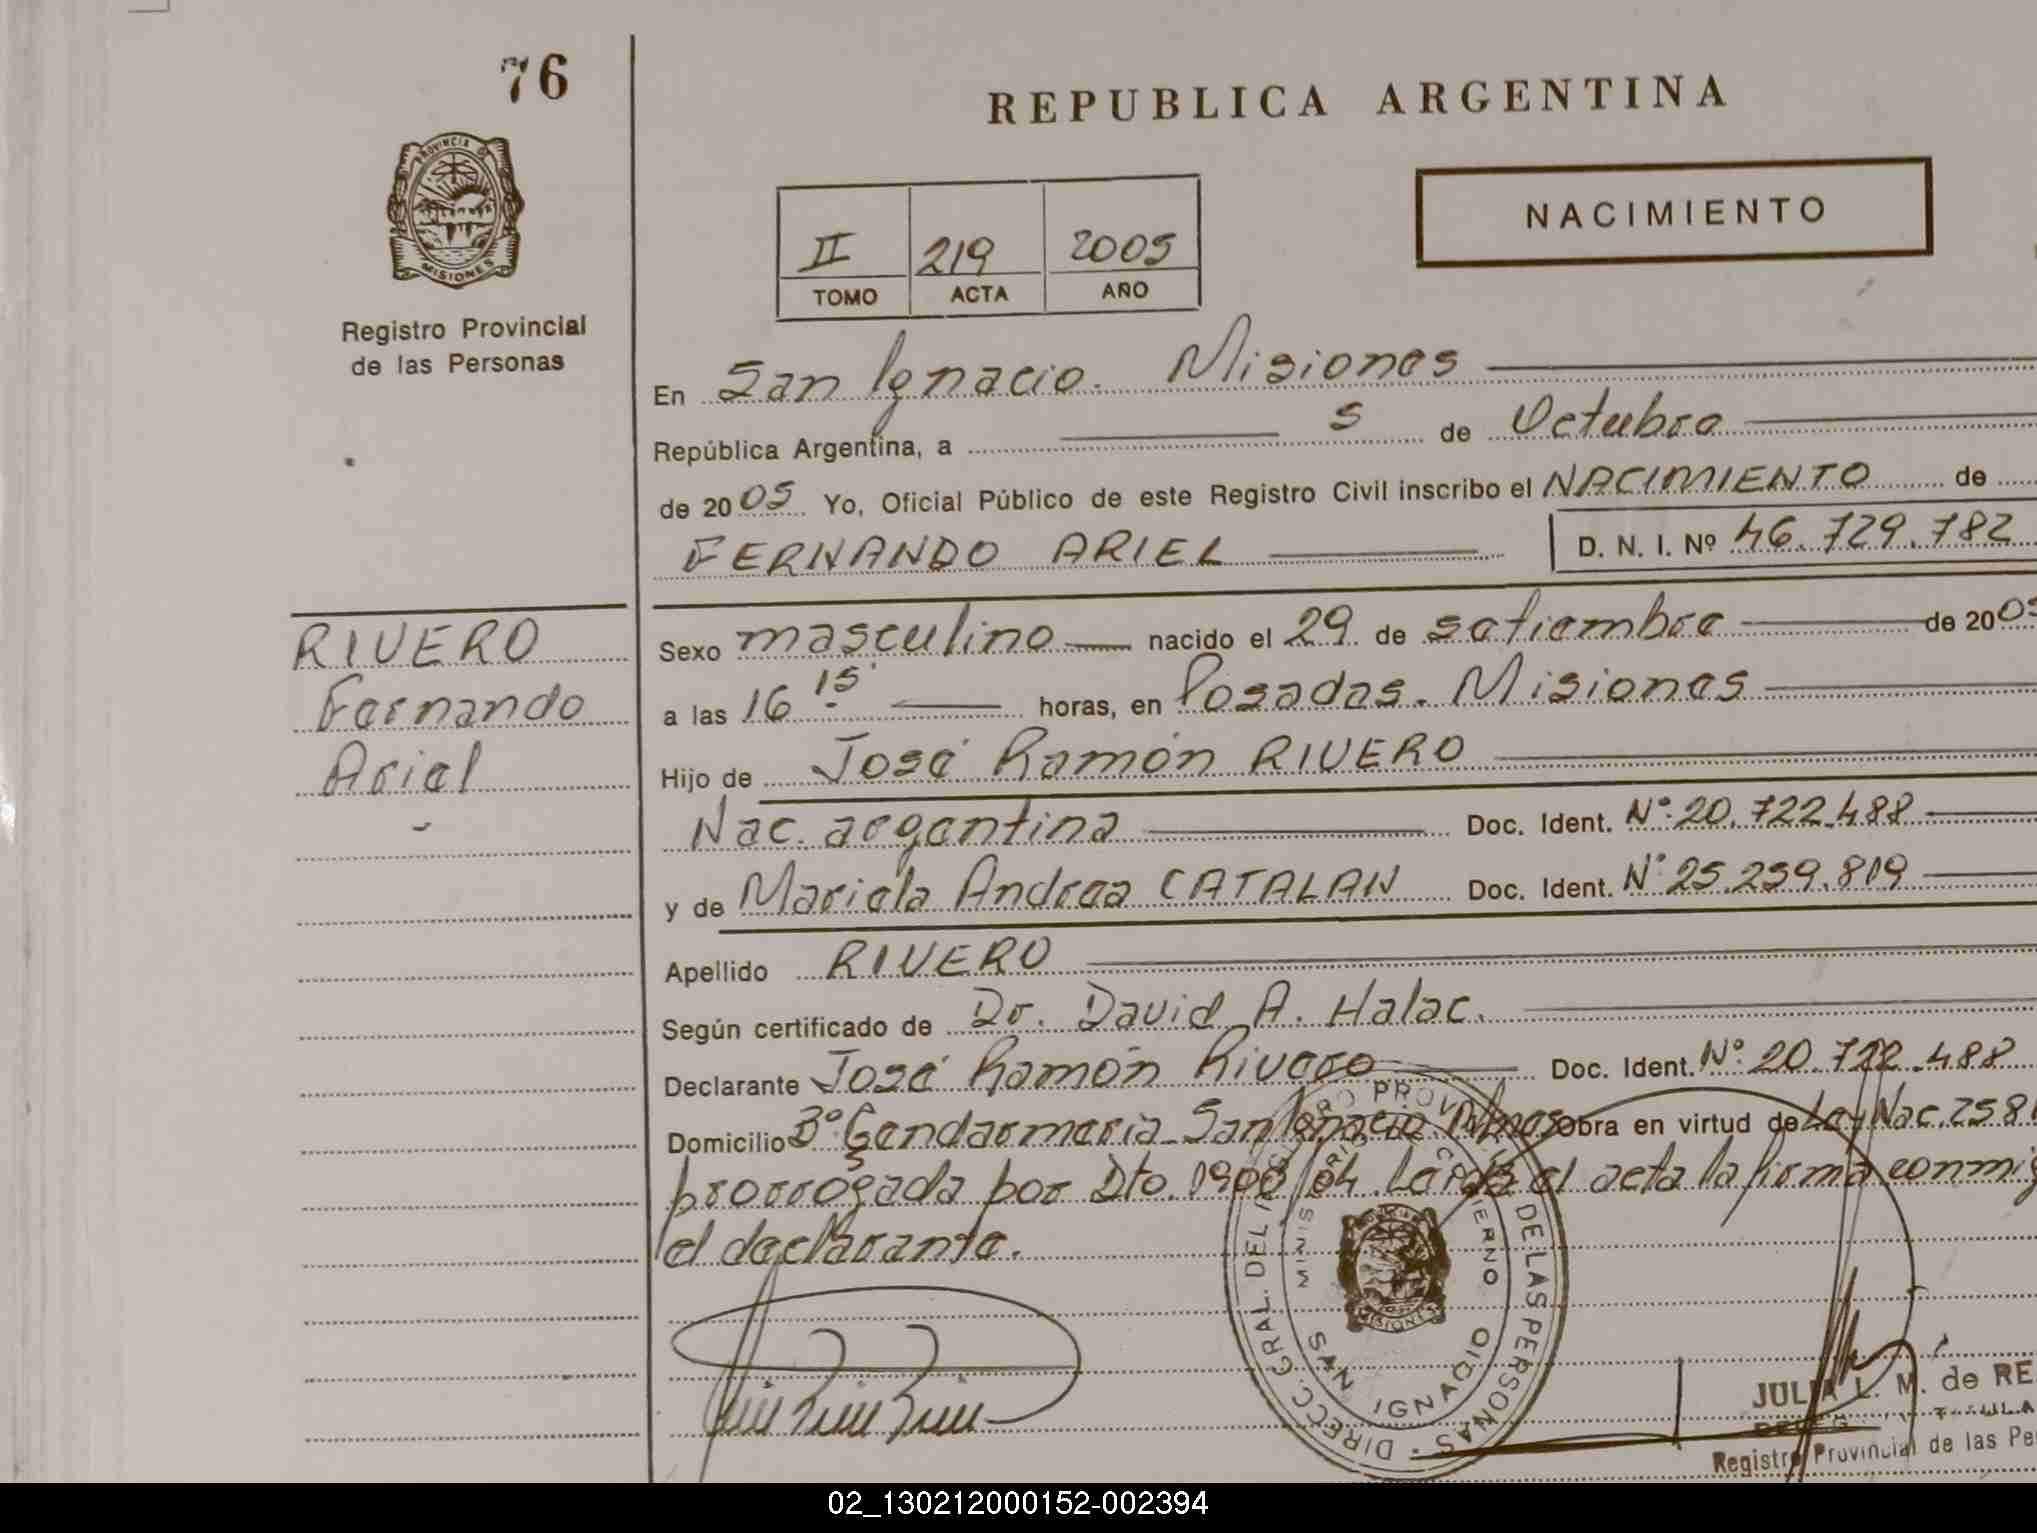 76
REPUBLICA ARGENTINA
PROVINCIA DE
MISIONES
NACIMIENTO
II 219 2005
TOMO ACTA AÑO
Registro Provincial
de las Personas
En San Ignacio. Misiones
República Argentina, a 5 de Octubre
de 2005 Yo, Oficial Público de este Registro Civil inscribo el NACIMIENTO de
FERNANDO ARIEL D. N. I. Nº 46.729.782
RIVERO
Fernando
Ariel
Sexo masculino nacido el 29 de setiembre de 2005
a las 16 15 horas, en Posadas. Misiones
Hijo de José Ramón RIVERO
Nac. argentina Doc. Ident. Nº 20.722.488
y de Mariela Andrea CATALAN Doc. Ident. Nº 25.259.819
Apellido RIVERO
Según certificado de Dr. David A. Halac.
Declarante José Ramón Rivero Doc. Ident. Nº 20.722.488
Domicilio Bº Gendarmeria San Ignacio. Mnes Obra en virtud de Ley Nac. 258
prorrogada por Dto. 1908/04. Leida el acta la firma conmig
el declarante.
DIRECC. GRAL. DEL REGISTRO PROVINCIAL DE LAS PERSONAS
MINISTERIO DE GOBIERNO
MISIONES
SAN IGNACIO
JULIA L. M. de RE
Registro Provincial de las Pe
02_130212000152-002394